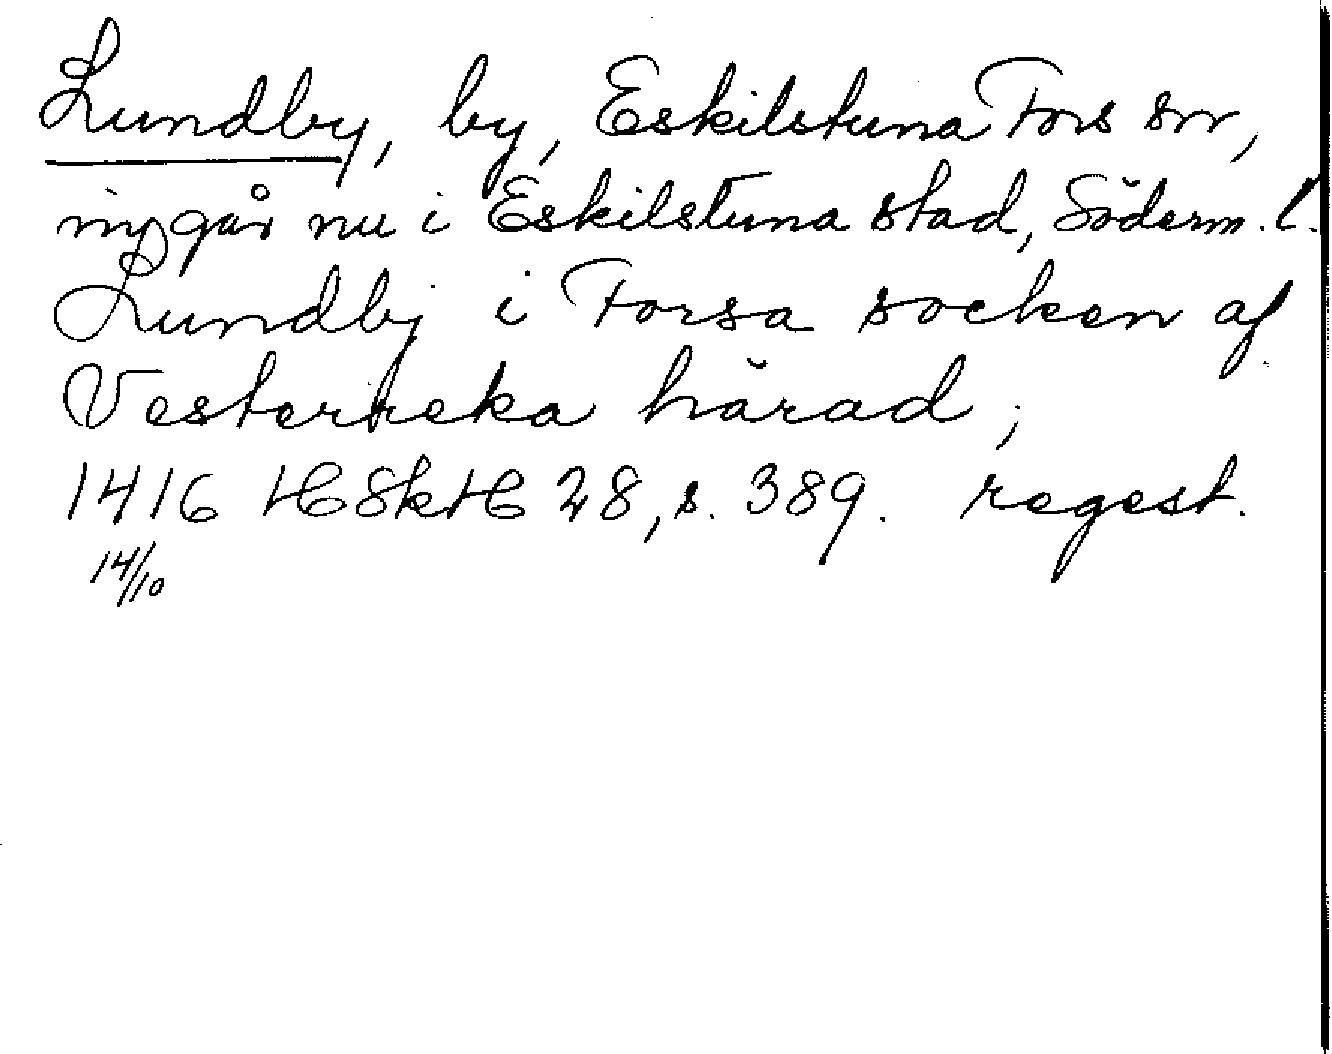 Lundby, by, Eskilstuna Fors sn,
ingår nu i Eskilstuna stad, Söderm. l.
Lundby i Forsa socken af
Vesterrekа härad;
1416 HSkH 28, s. 389. regest.
14/10